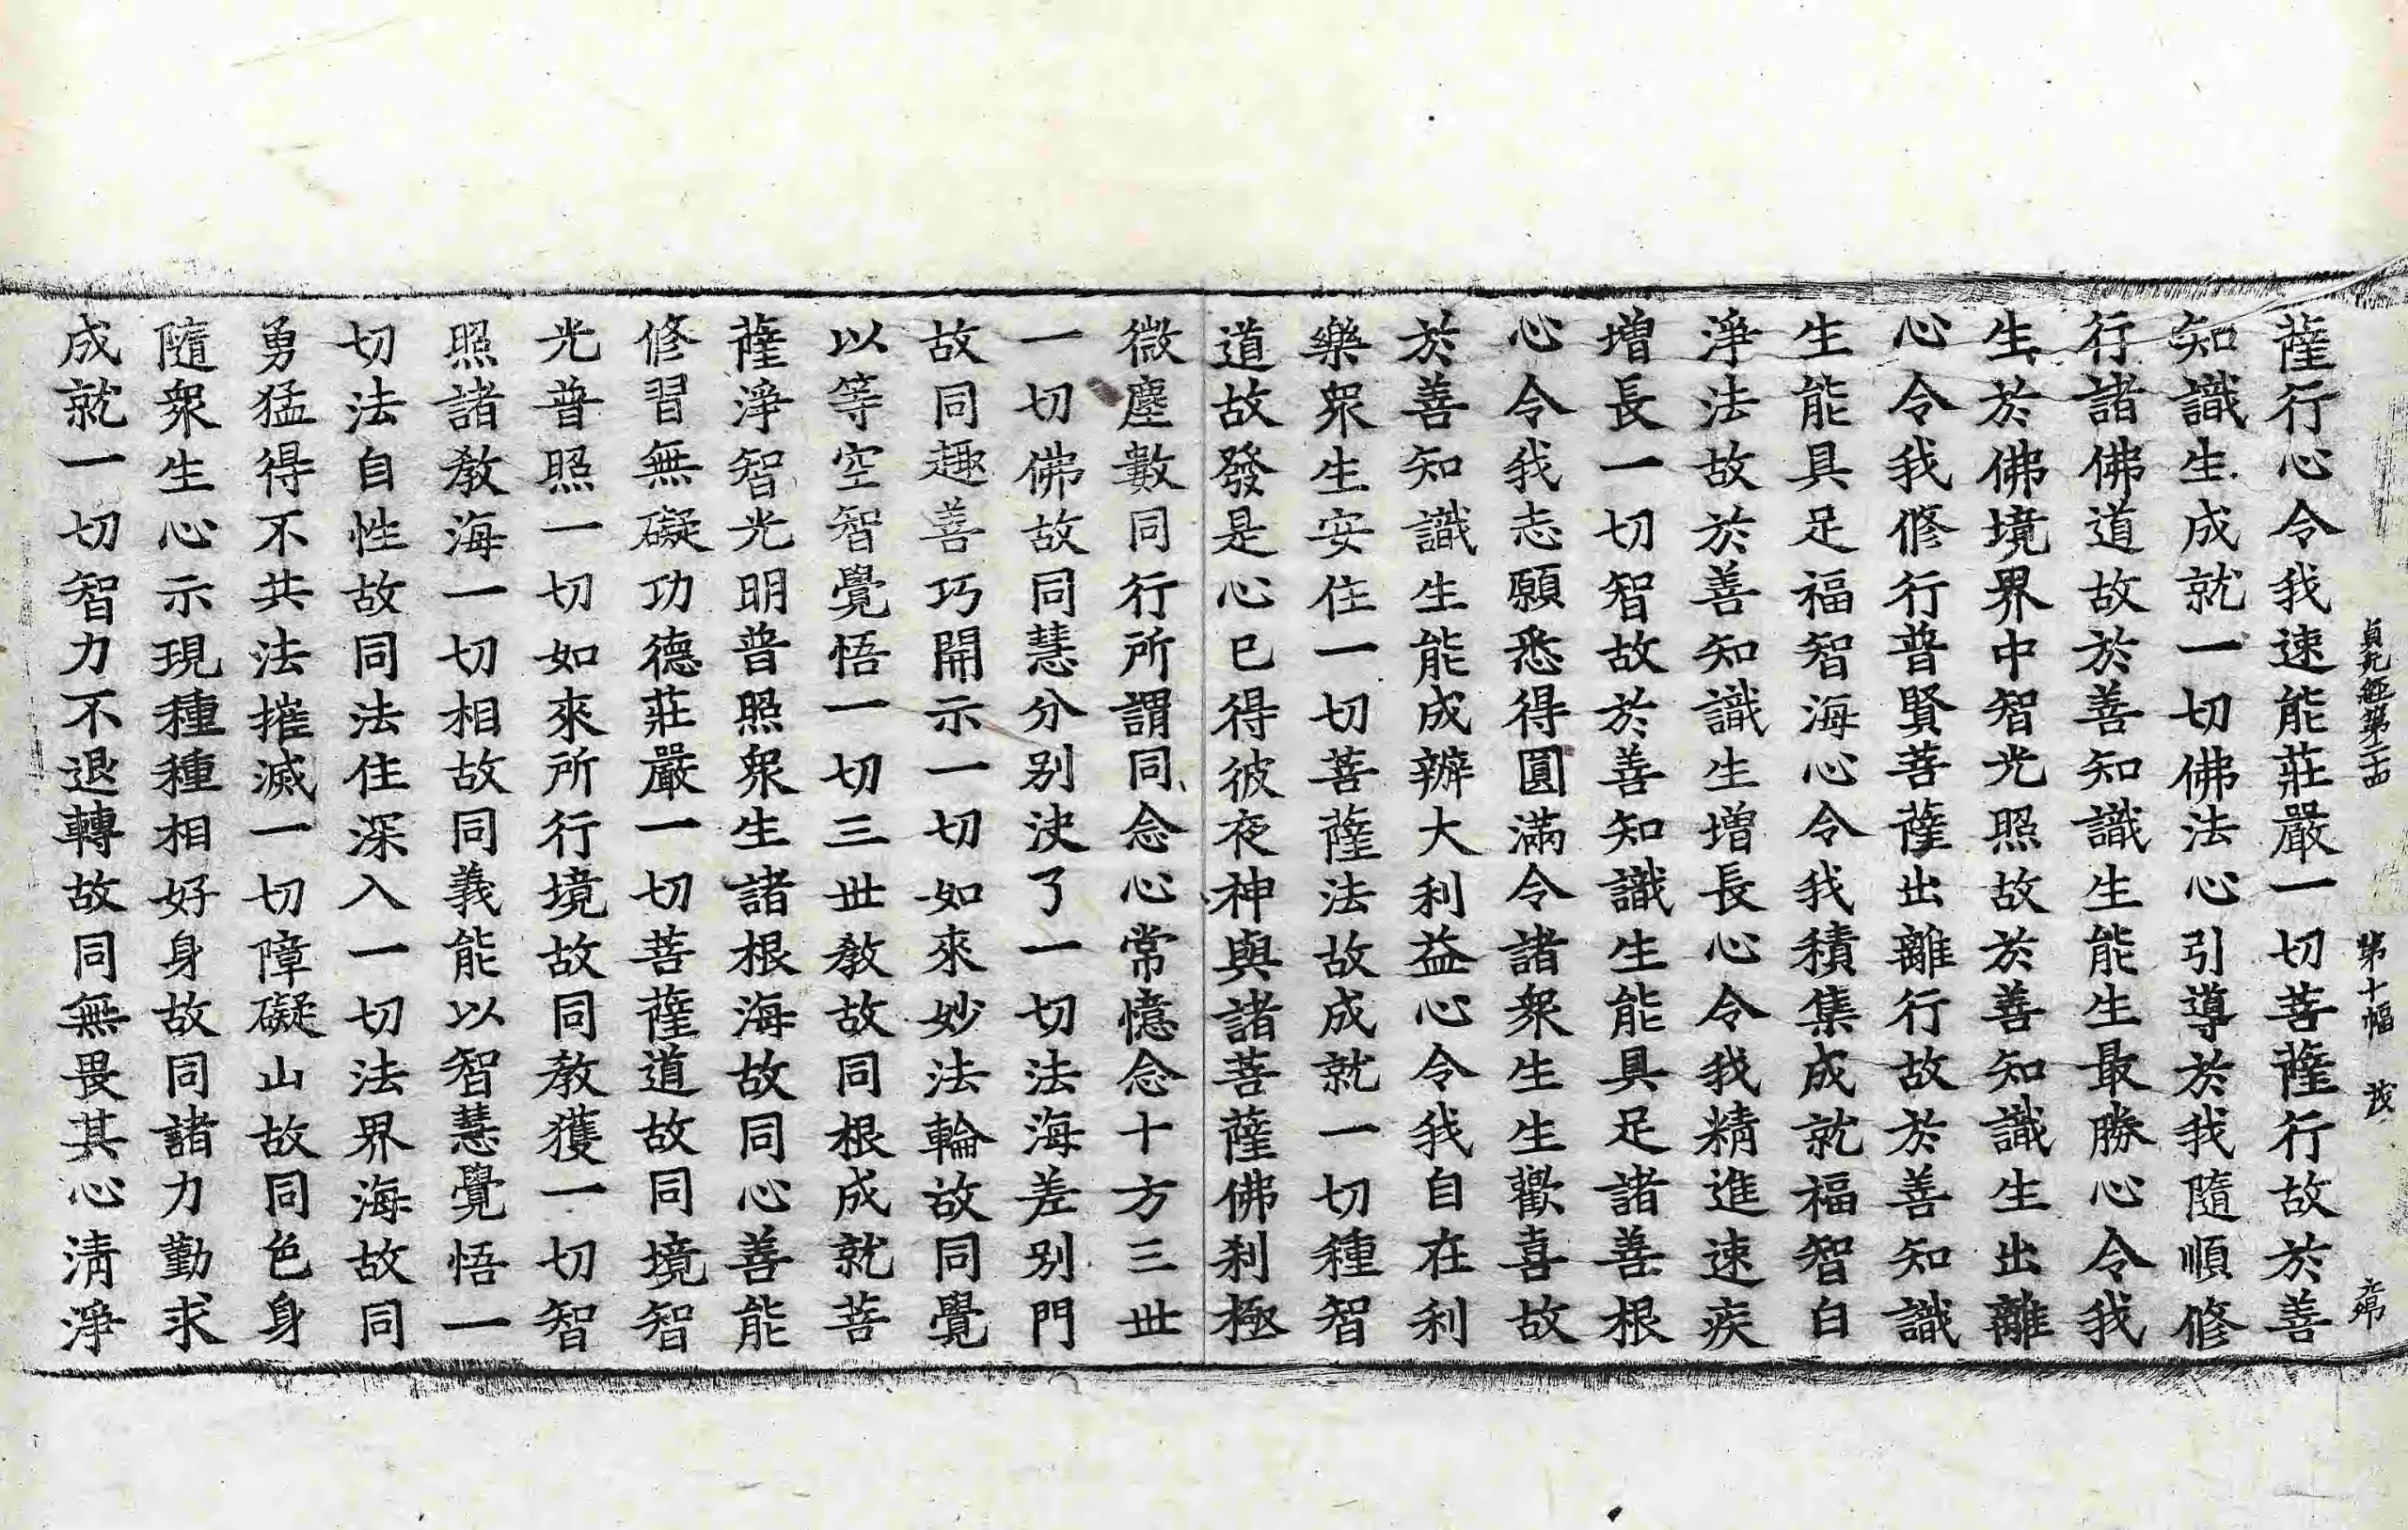 貞元經第二十四 第十幅 茂
薩行心令我速能莊嚴一切菩薩行故於善
知識生成就一切佛法心引導於我隨順修
行諸佛道故於善知識生能生最勝心令我
生於佛境界中智光照故於善知識生出離
心令我修行普賢菩薩出離行故於善知識
生能具足福智海心令我積集成就福智白
淨法故於善知識生增長心令我精進速疾
增長一切智故於善知識生能具足諸善根
心令我志願悉得圓滿令諸衆生生歡喜故
於善知識生能成辦大利益心令我自在利
樂衆生安住一切菩薩法故成就一切種智
道故發是心已得彼夜神與諸菩薩佛刹極
微塵數同行所謂同念心常憶念十方三世
一切佛故同慧分別決了一切法海差別門
故同趣善巧開示一切如來妙法輪故同覺
以等空智覺悟一切三世教故同根成就菩
薩淨智光明普照衆生諸根海故同心善能
修習無礙功德莊嚴一切菩薩道故同境智
光普照一切如來所行境故同教獲一切智
照諸教海一切相故同義能以智慧覺悟一
切法自性故同法住深入一切法界海故同
勇猛得不共法摧滅一切障礙山故同色身
隨衆生心示現種種相好身故同諸力勤求
成就一切智力不退轉故同無畏其心清淨